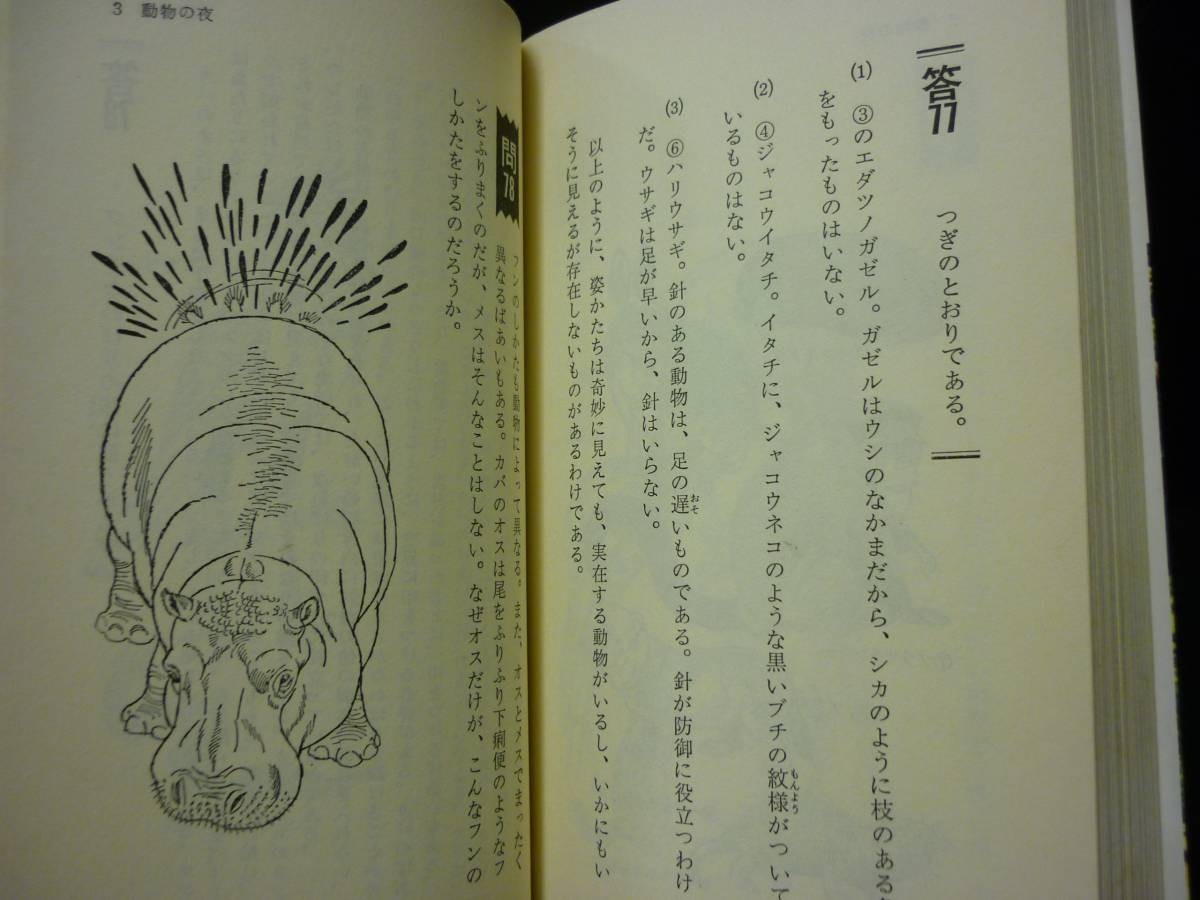 答77
つぎのとおりである。
(1) ③のエダツノガゼル。ガゼルはウシのなかまだから、シカのように枝のある
をもったものはいない。
(2) ④ジャコウイタチ。イタチに、ジャコウネコのような黒いブチの紋様がついて
もんよう
いるものはない。
(3) ⑥ハリウサギ。針のある動物は、足の遅いものである。針が防御に役立つわけ
おそ
だ。ウサギは足が早いから、針はいらない。
以上のように、姿かたちは奇妙に見えても、実在する動物がいるし、いかにもい
そうに見えるが存在しないものがあるわけである。
3 動物の夜
問78
フンのしかたも動物によって異なる。また、オスとメスでまったく
異なるばあいもある。カバのオスは尾をふりふり下痢便のようなフ
ンをふりまくのだが、メスはそんなことはしない。なぜオスだけが、こんなフンの
しかたをするのだろうか。